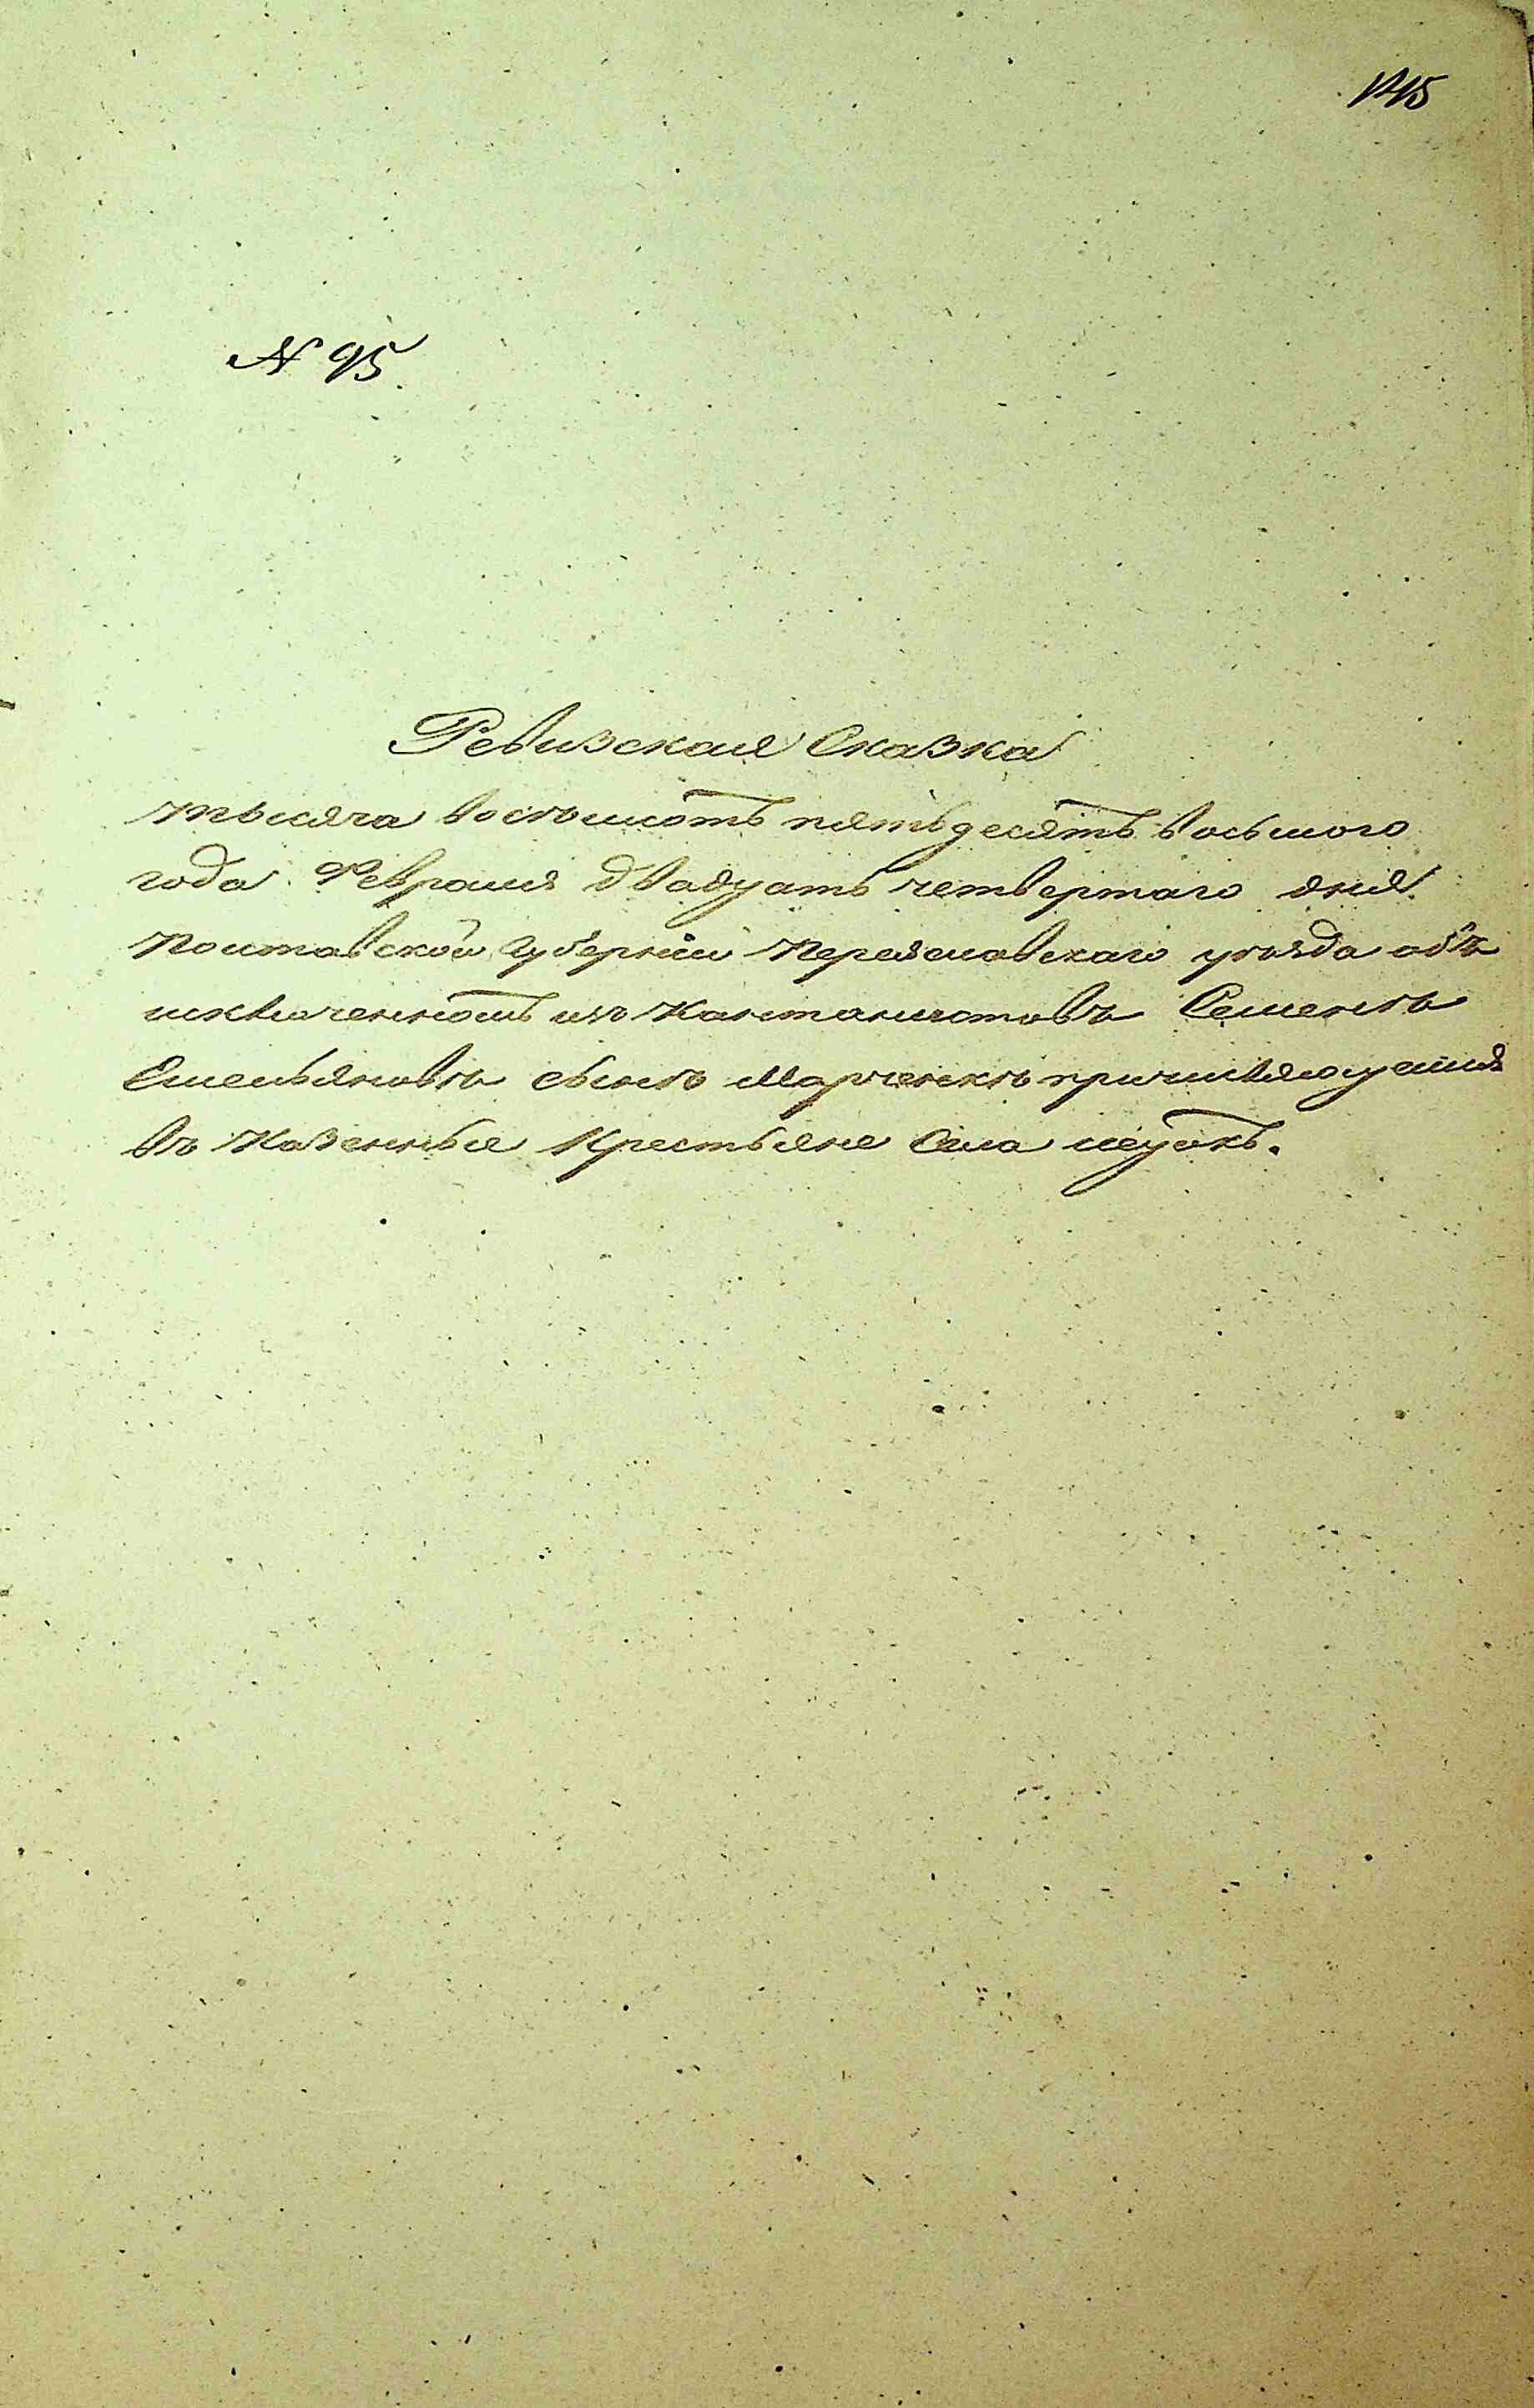 № 95.
Ревизская Сказка
тысяча восемьсотъ пятьдесятъ восьмого
года Февраля двадцать четвертаго дня
Полтавской Губерніи Переяславскаго уѣзда объ
исключенномъ изъ Кантонистовъ Семенъ
Емельяновъ сынъ Марченкѣ причисляющемся
въ Казенные Крестьяне Села